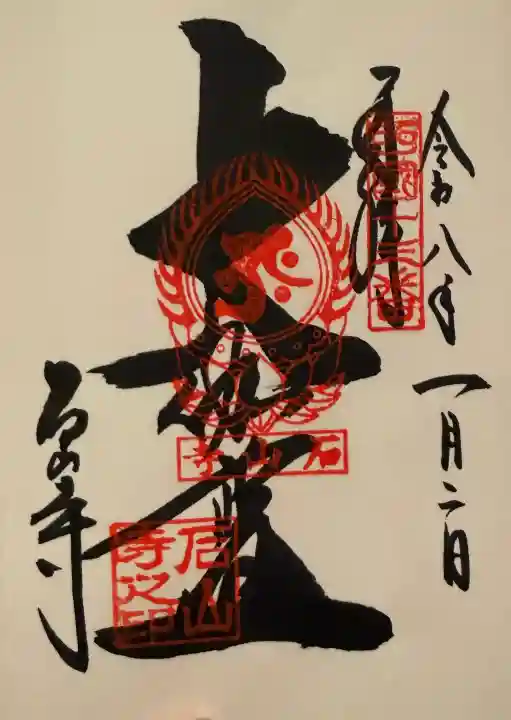 令和八年一月二日
奉拝
西国十三番
石山寺
石山寺之印
石山寺